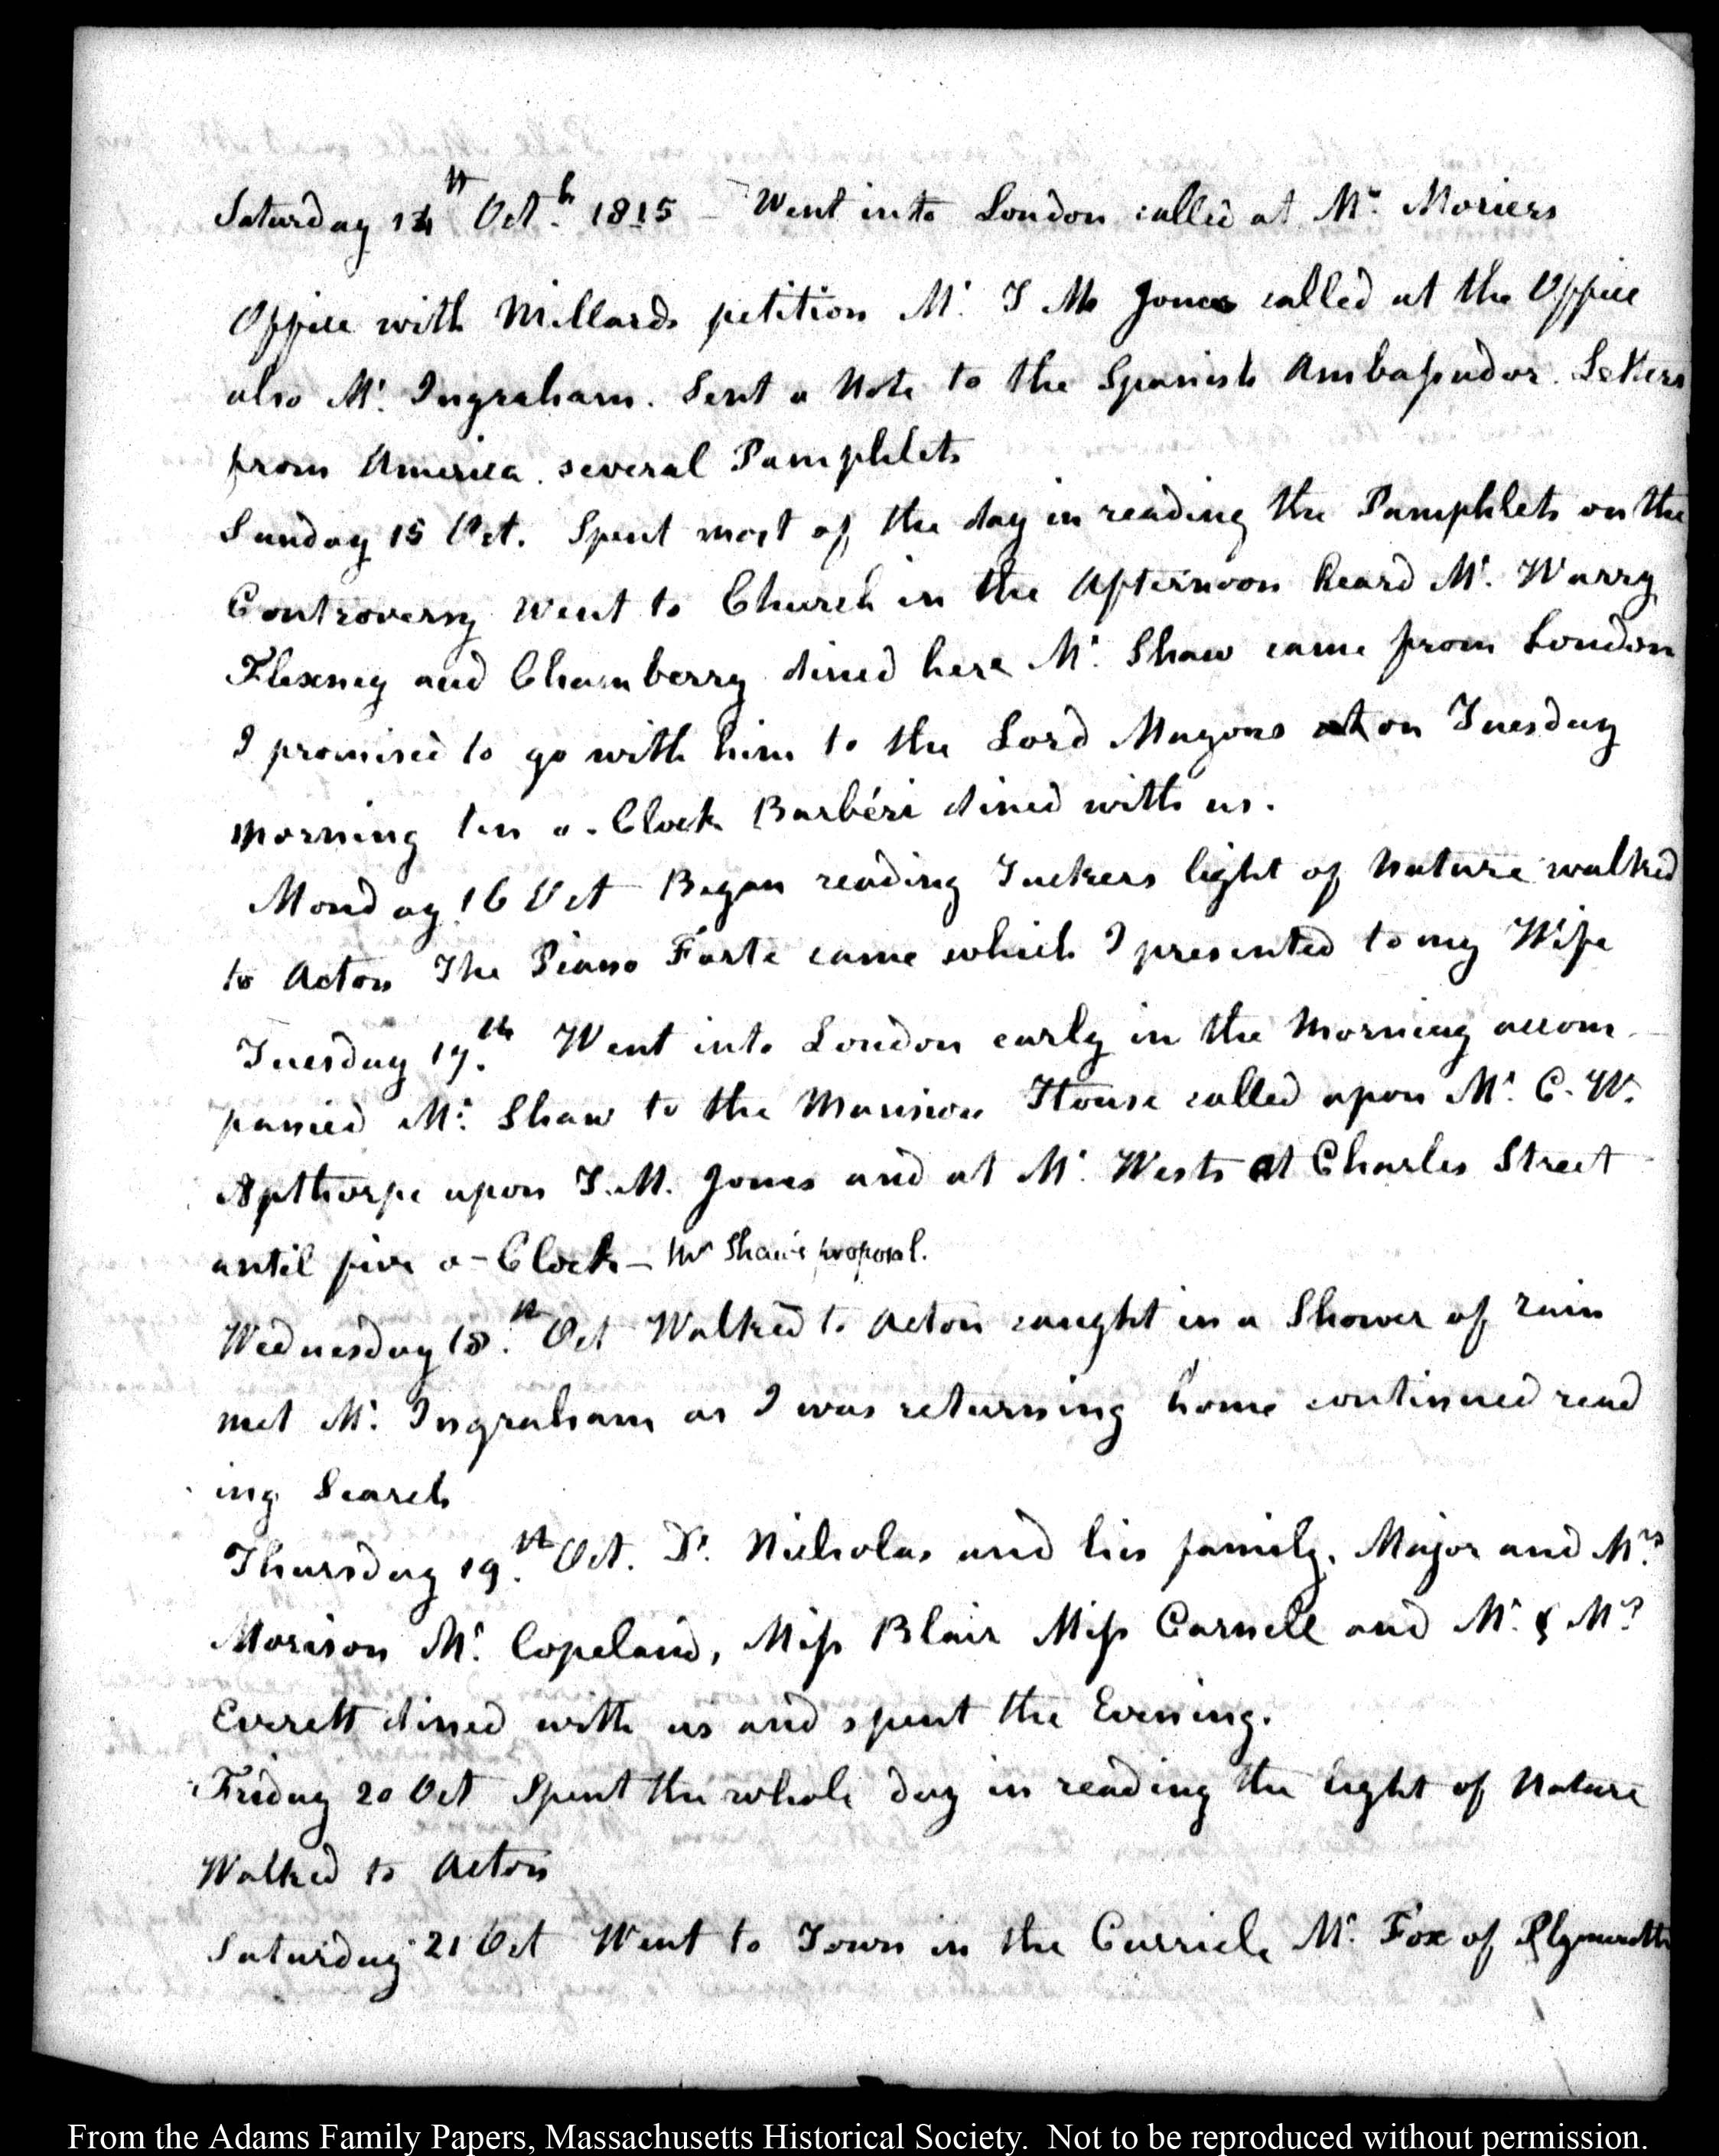 Saturday 14th Octb. 1815 – Went into London called at Mr. Moriers
Office with Millards petition Mr. T M Jones called at the Office
also Mr. Ingraham. Sent a Note to the Spanish Ambassador. Letters
from America. several Pamphlets
Sunday 15 Oct. Spent most of the day in reading the Pamphlets on the
Controversy Went to Church in the Afternoon heard Mr. Wurry
Flexney and Chamberry dined here Mr. Shaw came from London
I promised to go with him to the Lord Mayors on Tuesday
morning ten o-Clock Barbéri dined with us.
Monday 16 Oct Began reading Tuckers light of Nature walked
to Acton The Piano Forte came which I presented to my Wife
Tuesday 17.th Went into London early in the Morning accom
panied Mr. Shaw to the Mansion House called upon Mr. C. W.
Apthorpe upon T. M. Jones and at Mr. Wests at Charles Street
until five o-Clock – Mr Shaw's proposal.
Wednesday 18.th Oct Walked to Acton caught in a Shower of rain
met Mr. Ingraham as I was returning home continued read
ing Search
Thursday 19.th Oct. Dr. Nicholas and his family. Major and Mrs.
Morison Mr. Copeland, Miss Blair Miss Carnell and Mr. & Mrs.
Everett dined with us and spent the Evening.
Friday 20 Oct Spent the whole day in reading the light of Nature
Walked to Acton
Saturday 21 Oct Went to Town in the Curricle Mr. Fox of Plymouth
From the Adams Family Papers, Massachusetts Historical Society. Not to be reproduced without permission.